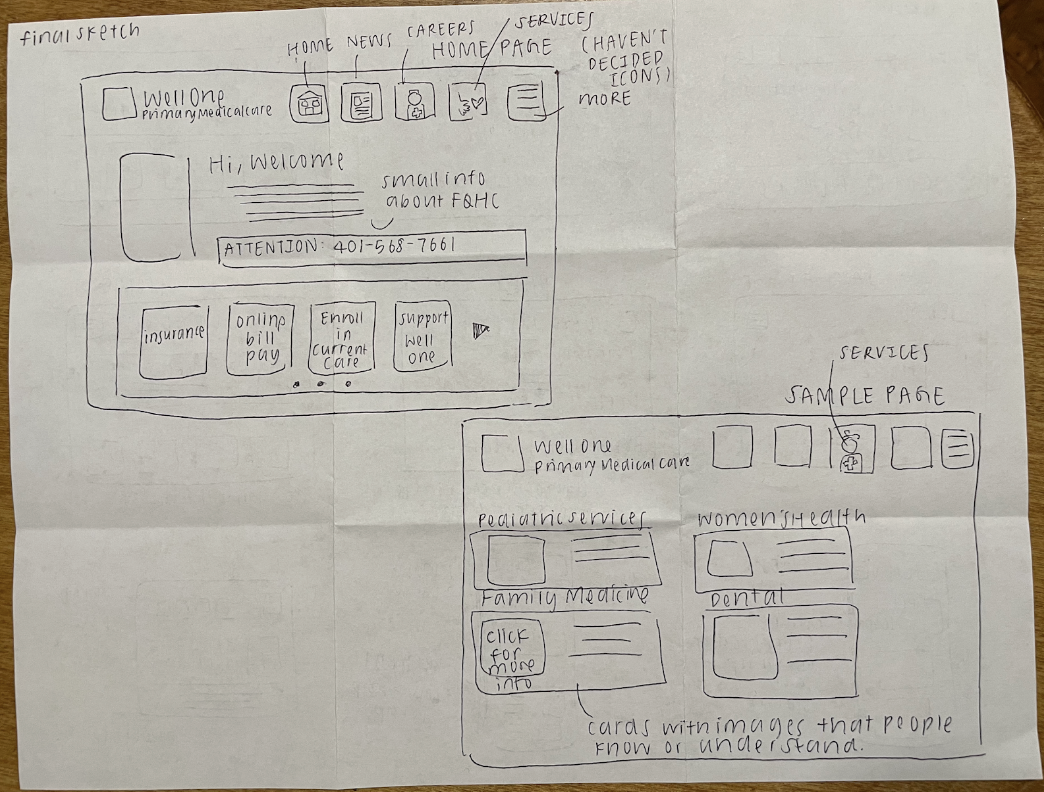 final sketch
HOME NEWS CAREERS SERVICES
(HAVEN'T
DECIDED
ICONS)
HOME PAGE
MORE
Well One
Primary Medical care
Hi, Welcome
small info
about FQHC
ATTENTION: 401-568-7661
insurance
online
bill
pay
Enroll
in
current
care
support
well
one
SERVICES
SAMPLE PAGE
Well One
Primary Medical care
Pediatric services
Women's Health
Family Medicine
Dental
click
for
more
info
cards with images that people
know or understand.